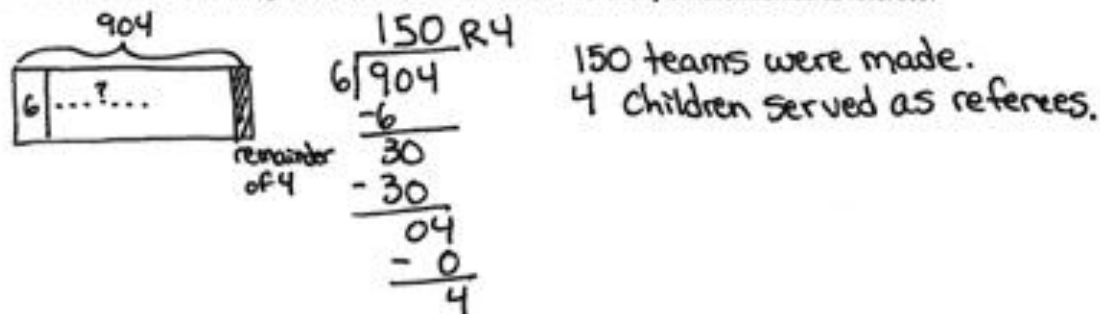 904
6 ...?...
remainder
of 4
150 R4
6 904
-6
30
- 30
04
- 0
4
150 teams were made.
4 Children served as referees.